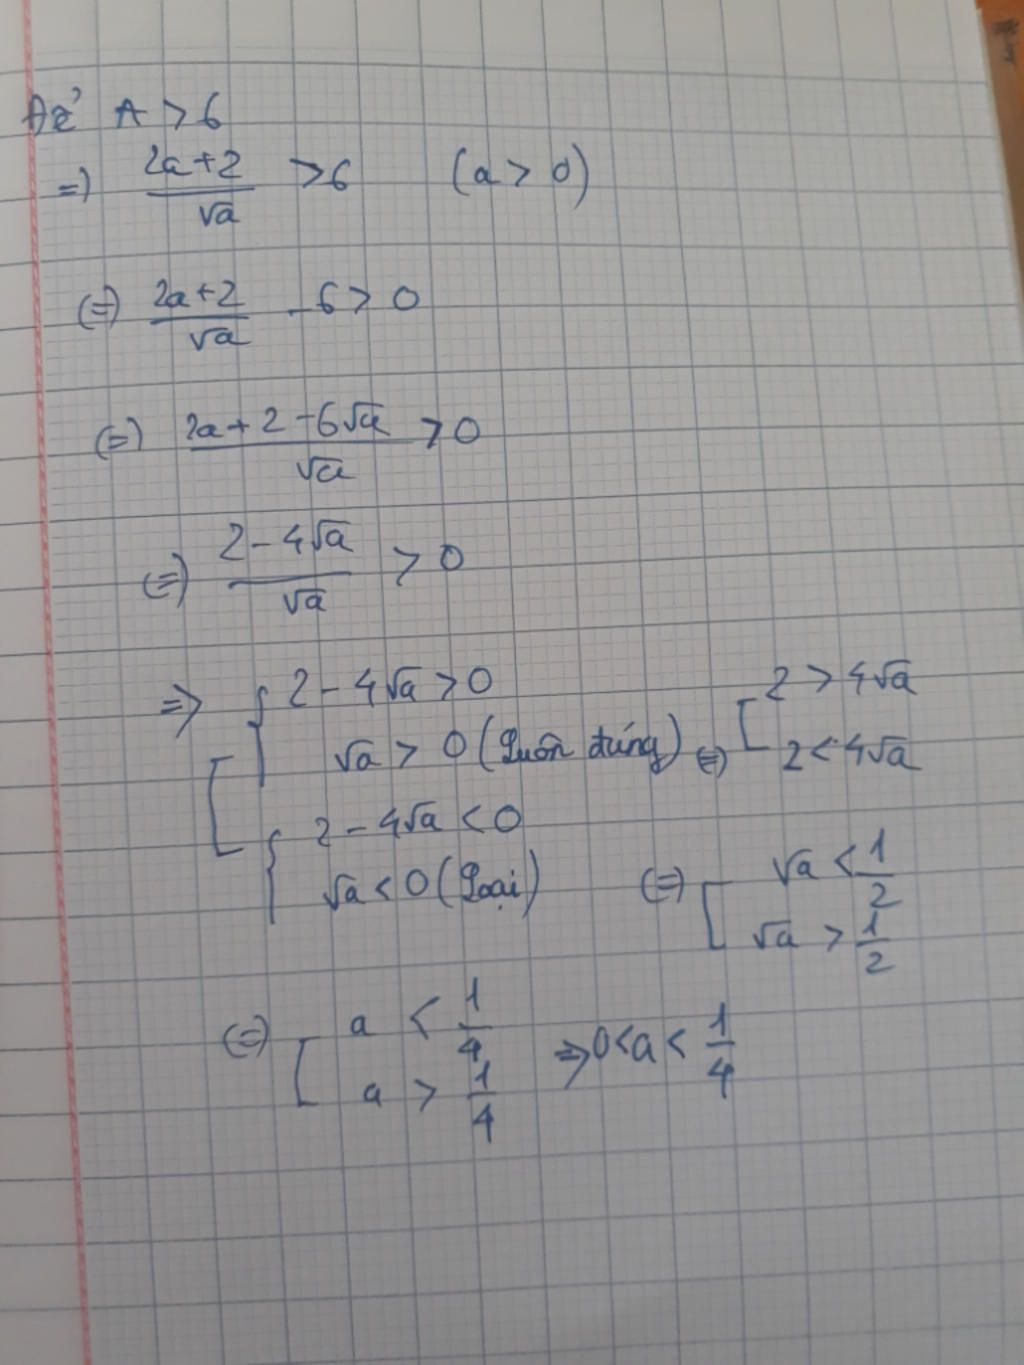 Để A > 6
=) (2a+2)/√a > 6 (a > 0)
(=) (2a+2)/√a - 6 > 0
(=) (2a+2-6√a)/√a > 0
(=) (2-4√a)/√a > 0
=> [ { 2 - 4√a > 0
√a > 0 (Luôn đúng) (=) [ 2 > 4√a
2 < 4√a
{ 2 - 4√a < 0
√a < 0 (Loại) (=) [ √a < 1/2
√a > 1/2
(=) [ a < 1/4 => 0<a< 1/4
a > 1/4